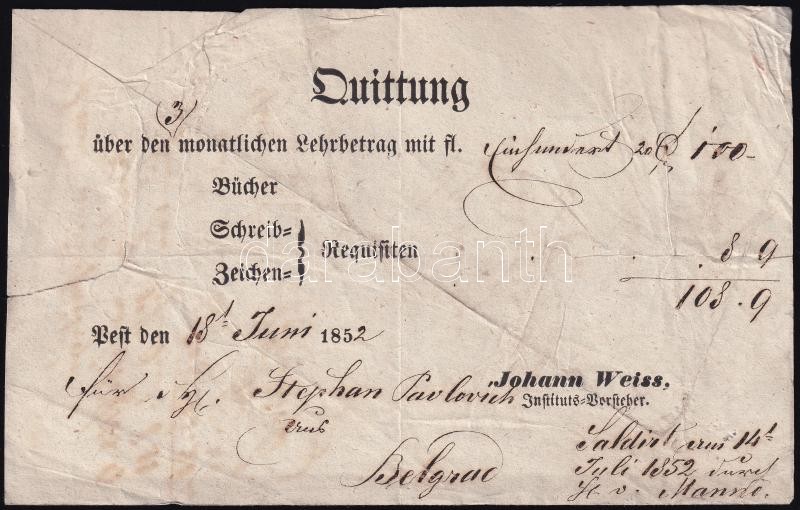 Quittung
(3)
über den monatlichen Lehrbetrag mit fl. Einhundert 100-
Bücher
Schreib=
Requisiten 8 9
Zeichen=
108.9
Pest den 18t Juni 1852
Johann Weiss,
Instituts-Vorsteher.
für Stephan Pavlovich
aus
Belgrad
Saldirt am 14t
Juli 1852 durch
H. v. Manno.
darabanth